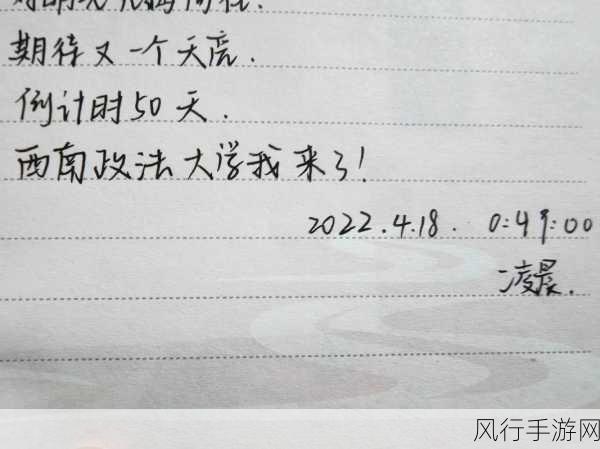 期待又一个天亮.
倒计时50天.
西南政法大学我来了!
2022.4.18. 0:49:00
凌晨.
风行手游网